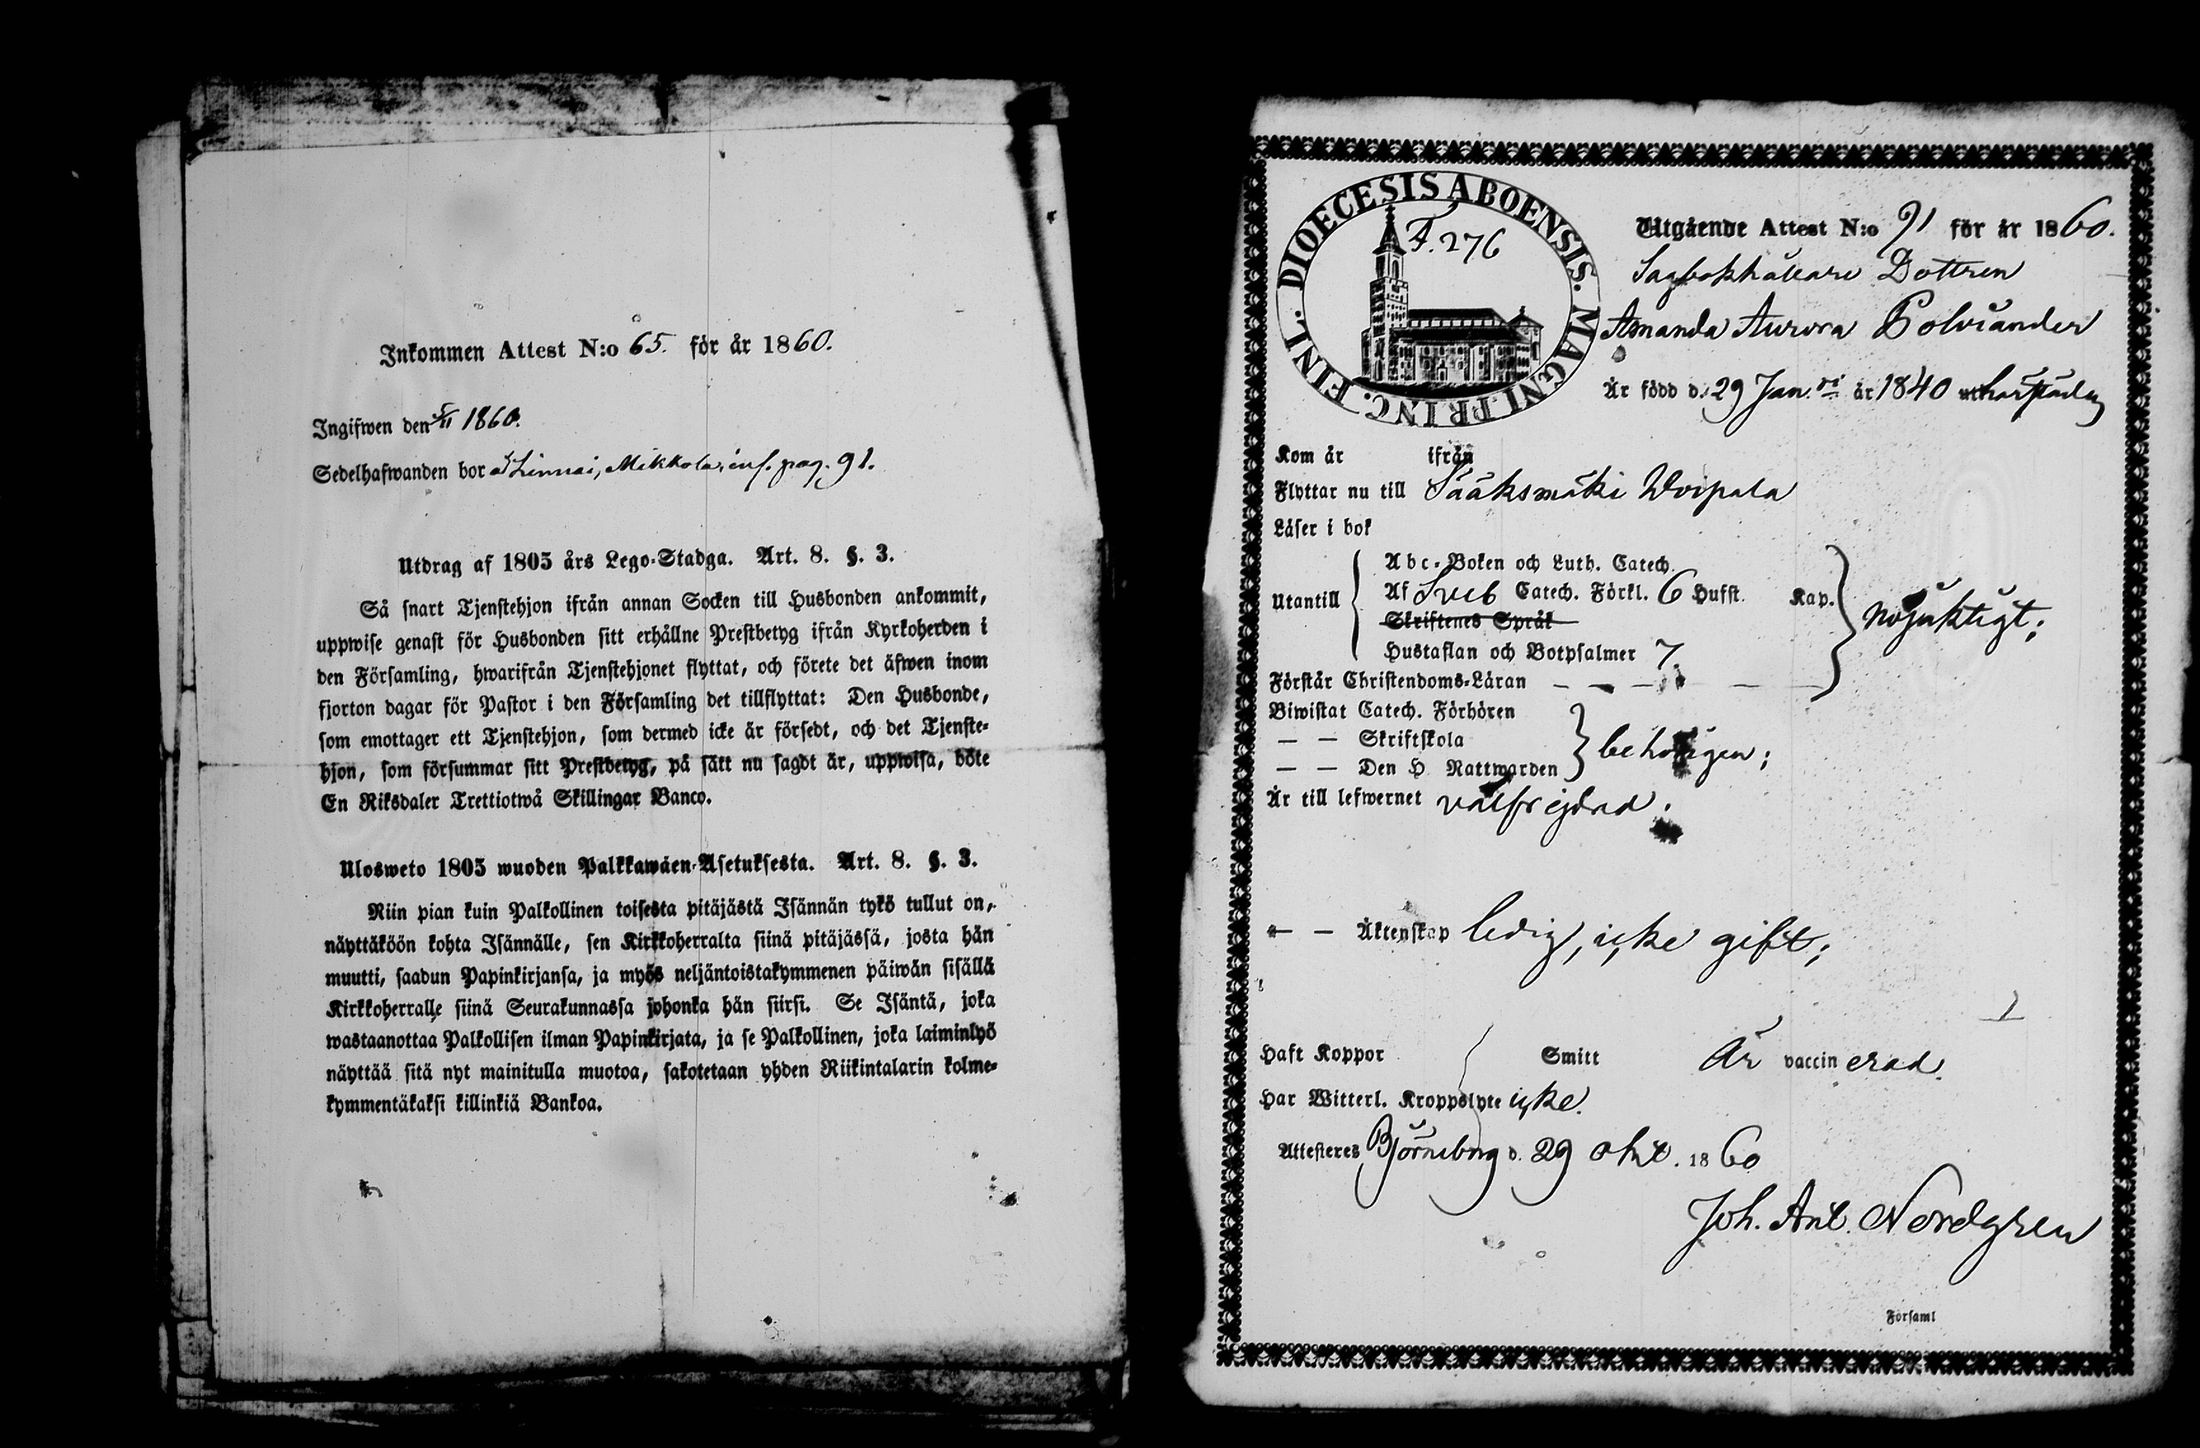 Inkommen Attest N:o 65. för år 1860.
Ingifwen den 5/11 1860.
Sedelhafwanden bor å Linnai, Mikkola, inf. pag. 91.
Utdrag af 1805 års Lego-Stadga. Art. 8. §. 3.
Så snart Tjenstehjon ifrån annan Socken till Husbonden ankommit,
uppwise genast för Husbonden sitt erhållne Prestbetyg ifrån Kyrkoherden i
den Församling, hwarifrån Tjenstehjonet flyttat, och förete det äfwen inom
fjorton dagar för Pastor i den Församling det tillflyttat: Den Husbonde,
som emottager ett Tjenstehjon, som dermed icke är försedt, och det Tjenste-
hjon, som försummar sitt Prestbetyg, på sätt nu sagdt är, uppwisa, böte
En Riksdaler Trettiotwå Skillingar Banco.
Ulosweto 1805 wuoden Palkkawäen-Asetuksesta. Art. 8. §. 3.
Niin pian kuin Palkollinen toisesta pitäjästä Isännän tykö tullut on,
näyttäköön kohta Isännälle, sen Kirkkoherralta siinä pitäjässä, josta hän
muutti, saadun Papinkirjansa, ja myös neljäntoistakymmenen päiwän sisällä
Kirkkoherralle siinä Seurakunnassa johonka hän siirsi. Se Isäntä, joka
wastaanottaa Palkollisen ilman Papinkirjata, ja se Palkollinen, joka laiminlyö
näyttää sitä nyt mainitulla muotoa, sakotetaan yhden Riikintalarin kolme-
kymmentäkaksi killinkiä Bankoa.
DIOECESIS ABOENSIS. MAGNI. PRINC. FINL.
F. 276
Utgående Attest N:o 91 för år 1860.
Sagbokhållare Dottren
Amanda Aurora Polviander
Är född d. 29 Jan.ri år 1840 härstädes
Kom år ifrån
Flyttar nu till Sääksmäki Woipala
Läser i bok
Utantill
Abc-Boken och Luth. Catech.
Af Sveb Catech. Förkl. 6 Hufst. Kap.
Skriftenes Språk
Hustaflan och Botpsalmer 7.
nöjaktigt;
Förstår Christendoms-Läran — — — — —
Biwistat Catech. Förhören
— — Skriftskola
— — Den H Nattwarden
behörigen;
Är till lefwernet välfrejdad.
— — Äktenskap ledig, icke gift;
Haft Koppor Smitt Är vaccinerad.
Har Witterl. Kroppslyte icke.
Attesteres Björneborg d. 29 Okt. 1860
Joh. Ant. Nordgren
Församl